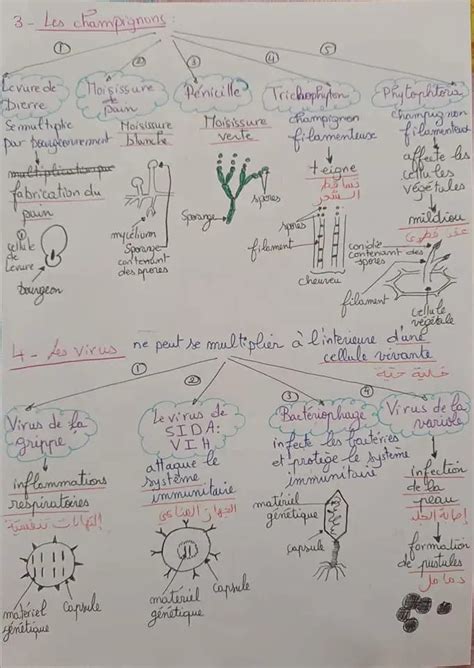 3 - Les champignons:
① ② ③ ④ ⑤
Levure de
Bierre
Moisissure
de
pain
Penicille
Trichophyton
Phytophtora
Se multiplie
par bourgeonnement
Moisissure
blanche
Moisissure
verte
champignon
filamenteuse
champignon
filamenteuse
fabrication du
pain
teigne
تساقط
الشعر
affecte les
cellules
végétales
mildiou
cellule
de
levure
bourgeon
mycélium
Sporange
contenant
des spores
Sporange
spores
spores
filament
cheuveu
conidie
contenant des
spores
filament
cellule
végétale
4 - Les virus ne peut se multiplier à l'intérieure d'une
cellule vivante
خلية حية
① ② ③ ④
Virus de la
grippe
Le virus de
SIDA:
VIH
Bactériophage
Virus de la
variole
inflammations
respiratoires
إلتهابات تنفسية
attaque le
système
immunitaire
الجهاز المناعي
infecte les bactéries
et protège le système
immunitaire
infection
de la
peau
إصابة الجلد
formation
de pustules
دمامل
matériel
génétique
capsule
matériel
génétique
capsule
matériel
génétique
capsule